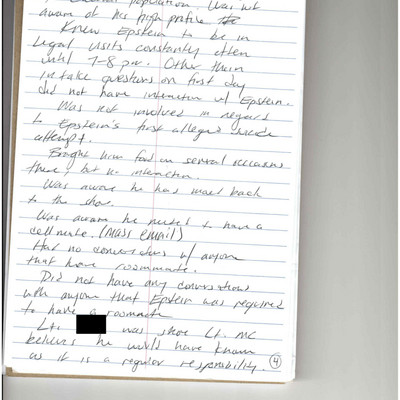 population. Was not
aware of his high profile
Knew Epstein to be in
legal visits constantly often
until 7-8 pm. Other then
intake questions on first day
did not have interaction w/ Epstein.
Was not involved in regard
to Epstein's first alleged suicide
attempt.
Brought him food on several occassions
there, but no interaction.
Was aware he had moved back
to the shu.
Was aware he needed to have a
cellmate. (mass email)
Had no conversations w/ anyone
that have roommate.
Did not have any conversations
with anyone that Epstein was required
to have a roommate
Lt. was shoe Lt. MC
believes he would have known
as it is a regular responsibility.
4